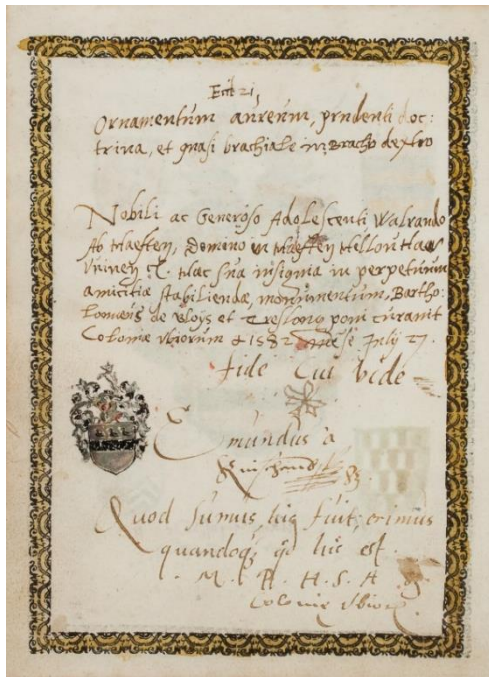 Eccl: 21,
Ornamentum aureum, prudenti doc:
trina, et quasi brachiale in Bracho dextro
Nobili ac Generoso Adolescenti Walrando
Ab Haeften, Domino in Haeften Hellou
Hac sua insignia in perpetuum
amicitiæ stabiliendæ, monumentum, Bartho:
lomeus de bloÿs et Treslong poni curauit
Coloniæ vbiorum a 1582 July 27.
fide Cui vide
Emundus à
Quod sumus, hic fuit, erimus
quandoq, qd hic est.
. M. P. H. S. A.
Colonie Vbior.